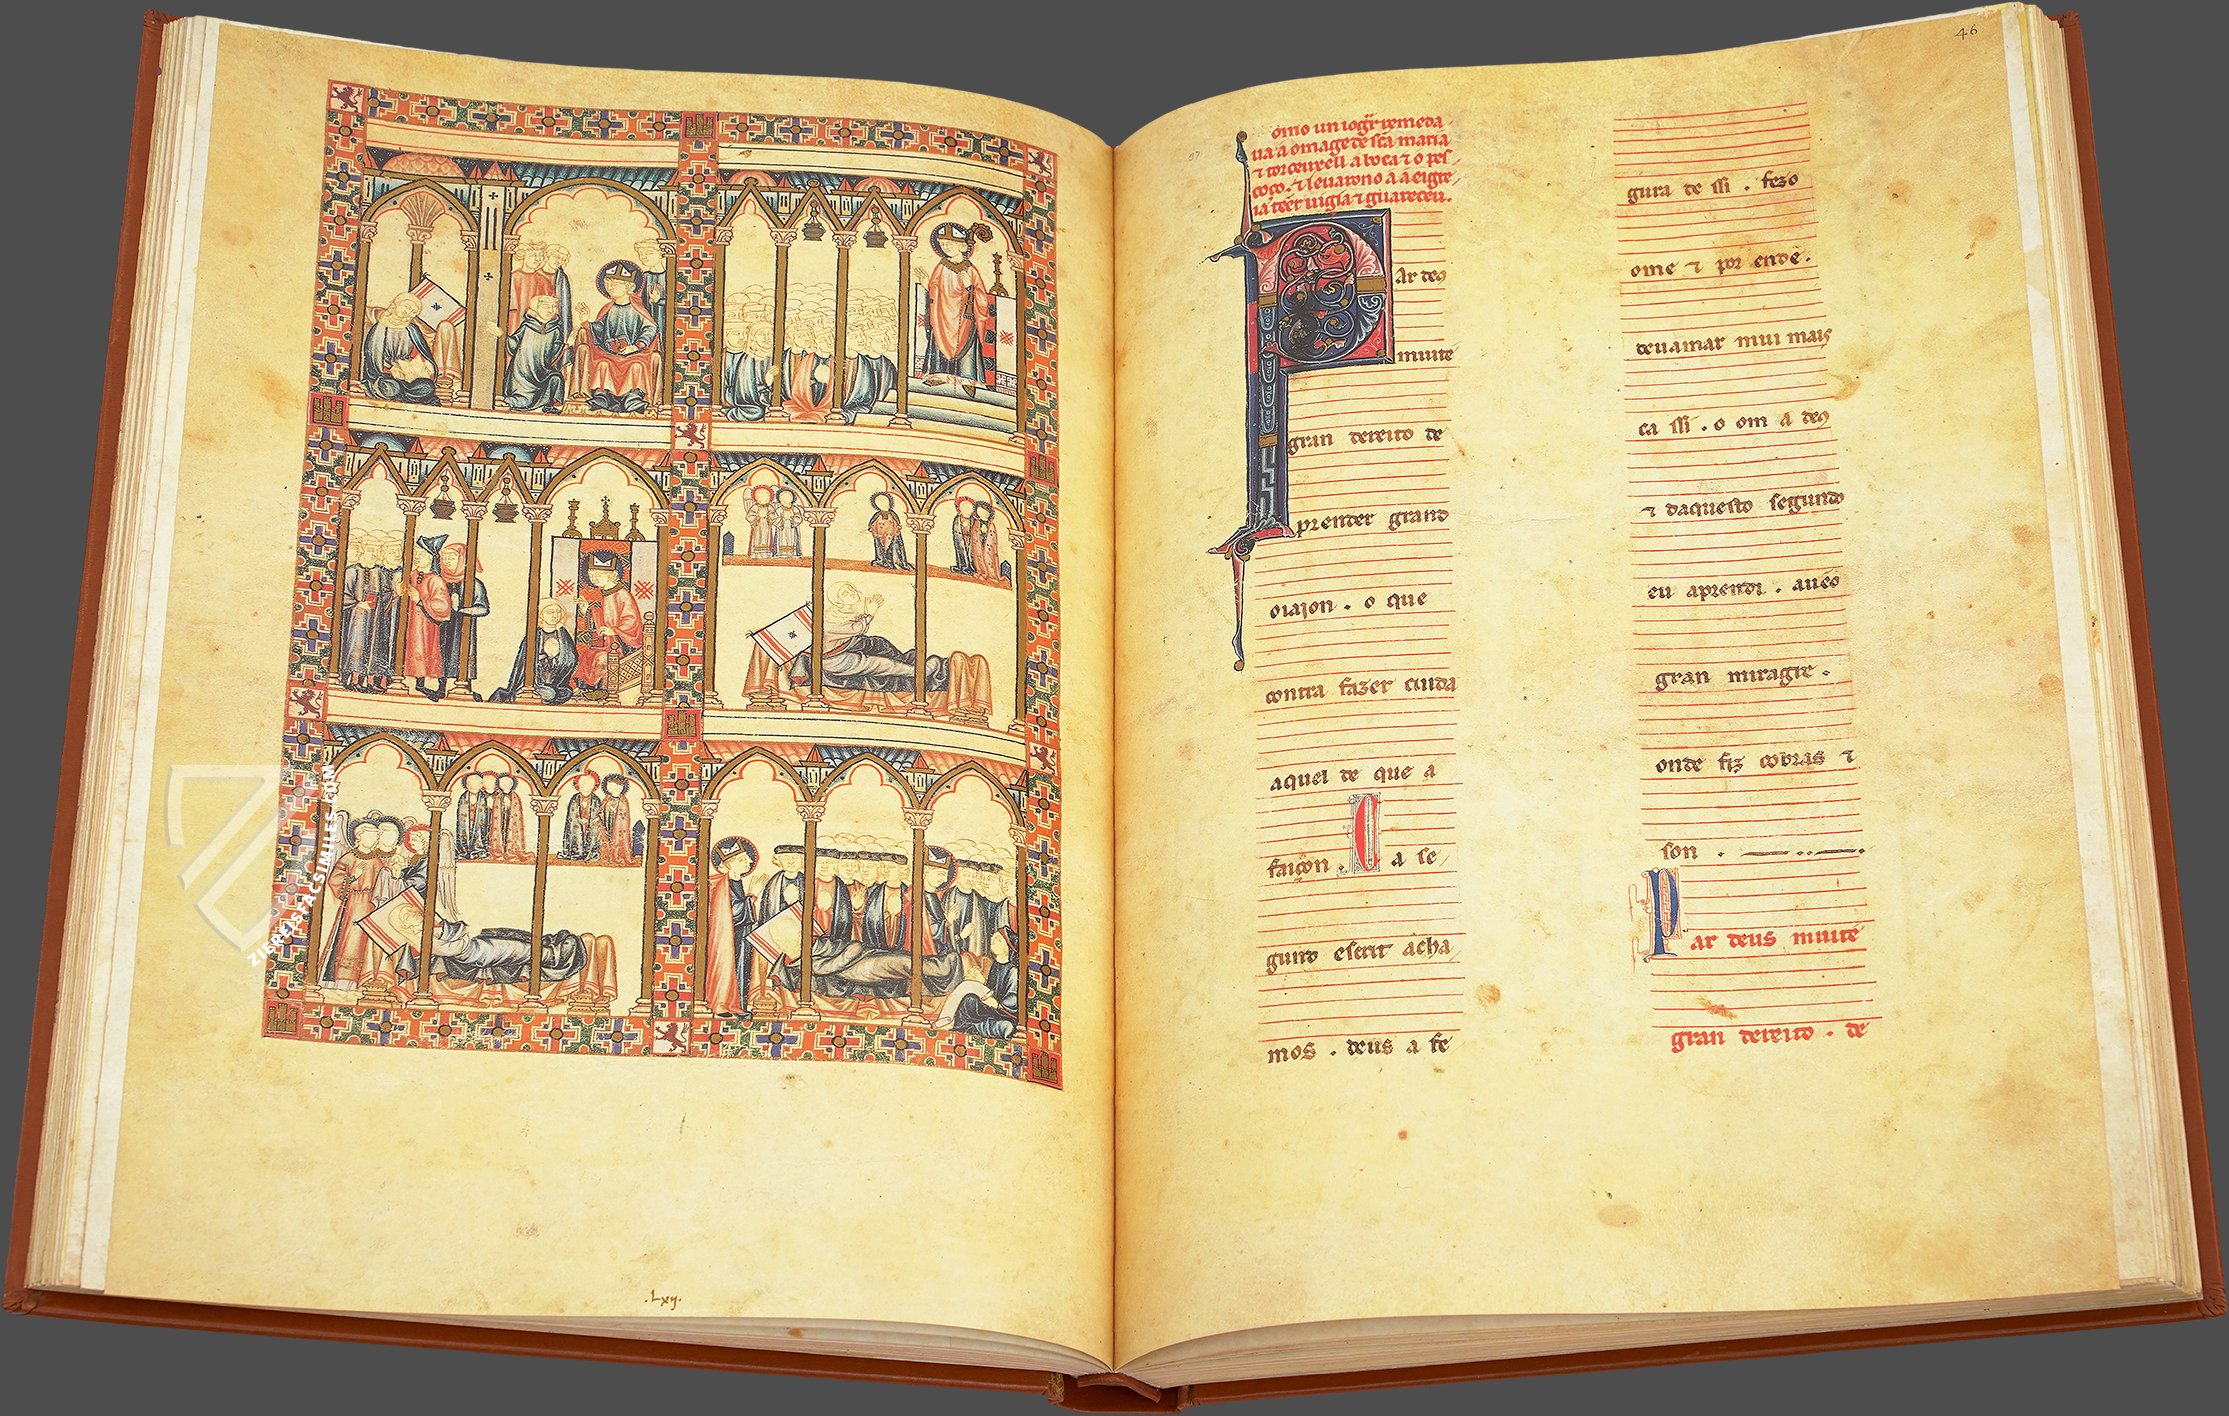 .Lxij.
ZIEREISFACSIMILES.COM
46
omo un iogr̃ remeda
ua a omage de sc̃a maria
⁊ torceuxell a boca ⁊ o pes
coço. ⁊ leuarono a a eigre
ia teer uigia ⁊ guareceu.
Par deus
muit e
gran dereito de
prender grand
oiaion . o que
contra fazer cuida
aquel de que a
faiçon . Ca se
guno escrit acha
mos . deus a fe
gura de ssi . fezo
ome ⁊ por ende .
deuamar mui mais
ca ssi . o om a deus
⁊ daquesto segundo
eu aprendi . aueo
gran miragre .
onde fiz cobras ⁊
son .
Par deus muit e
gran dereito . de